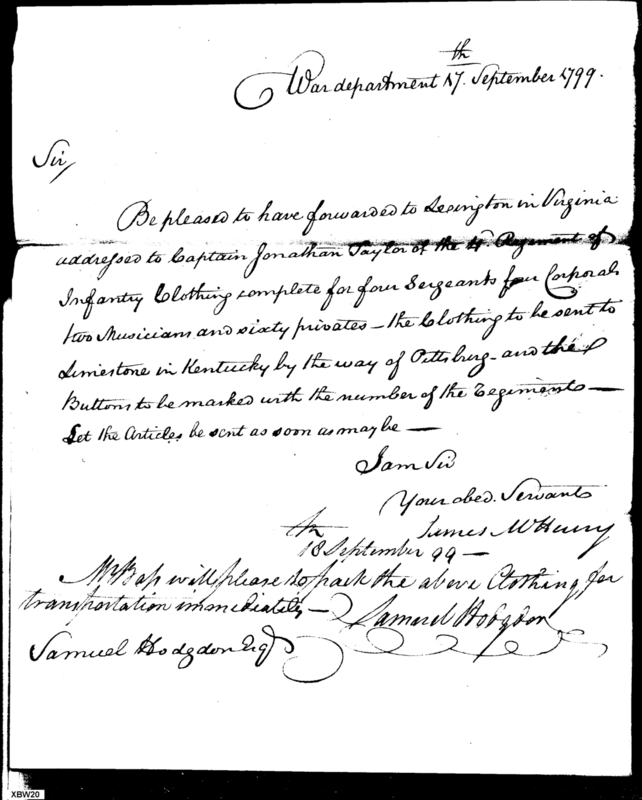 War department 17th September 1799.
Sir,
Be pleased to have forwarded to Lexington in Virginia
addressed to Captain Jonathan Taylor of the 4th Regement of
Infantry Clothing complete for four Sergeants four Corporals
two Musicians and sixty privates — the Clothing to be sent to
Limestone in Kentucky by the way of Pittsburg - and the
Buttons to be marked with the number of the Regiment —
Let the Articles be sent as soon as may be —
I am Sir
Your obed. Servant
James McHenry
18th September 99 —
Mr Bass will please to pack the above Clothing for
transportation immediately — Samuel Hodgdon
Samuel Hodgdon Esq
XBW20